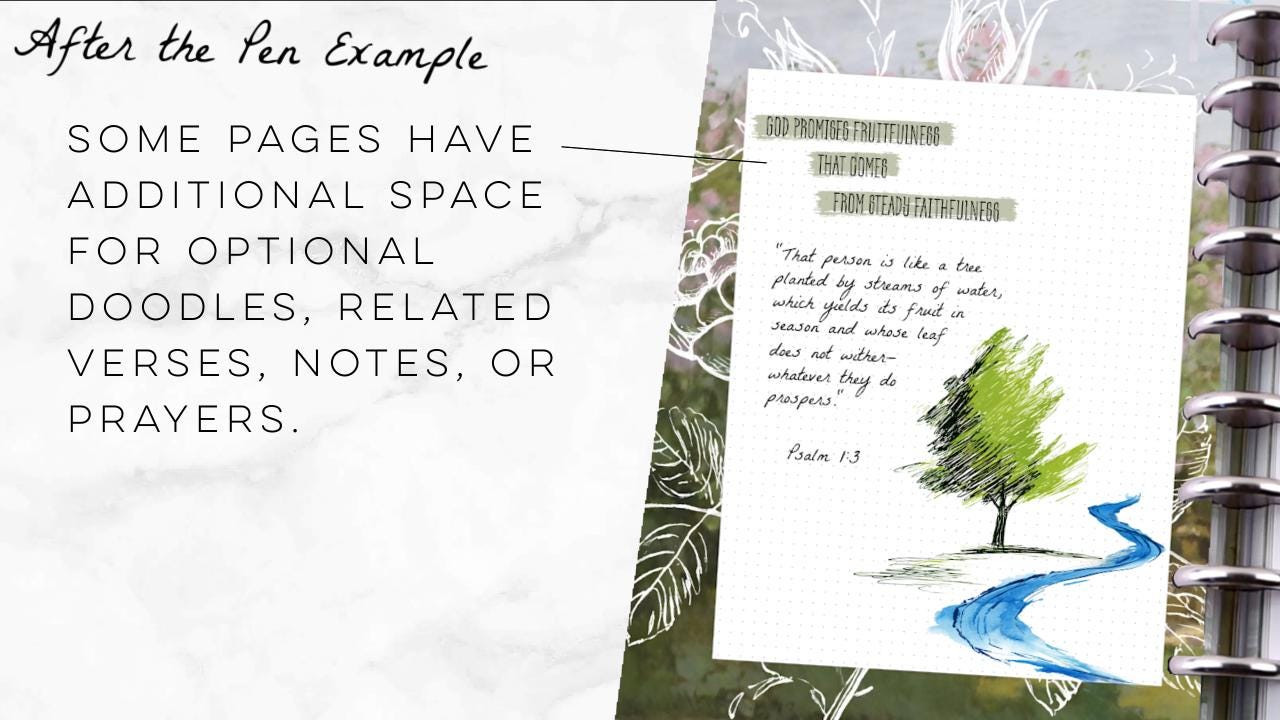 After the Pen Example
SOME PAGES HAVE
ADDITIONAL SPACE
FOR OPTIONAL
DOODLES, RELATED
VERSES, NOTES, OR
PRAYERS.
GOD PROMISES FRUITFULNESS
THAT COMES
FROM STEADY FAITHFULNESS
"That person is like a tree
planted by streams of water,
which yields its fruit in
season and whose leaf
does not wither—
whatever they do
prospers."
Psalm 1:3